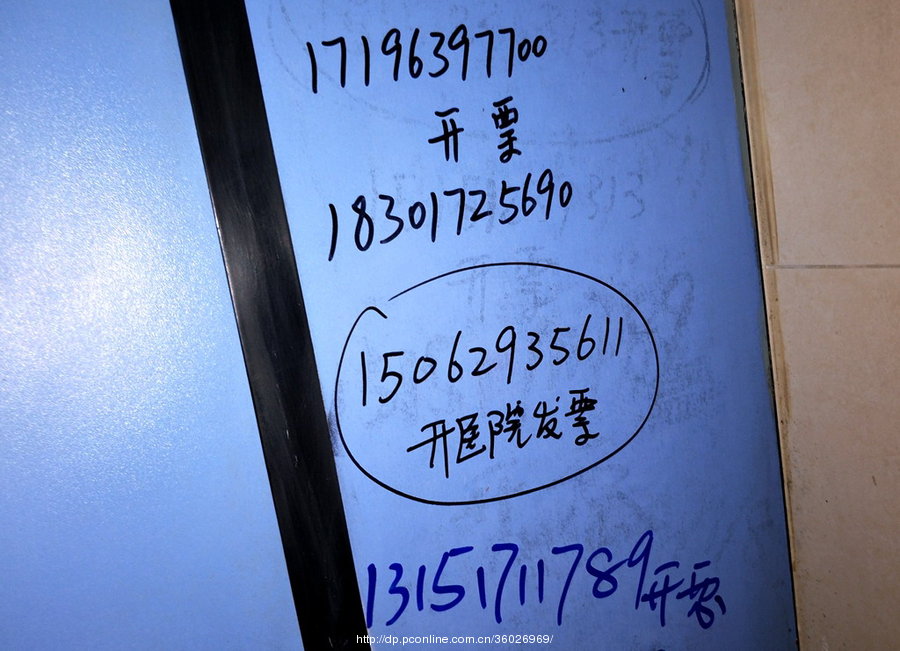 17196397700
开票
18301725690
15062935611
开医院发票
13151711789开票
http://dp.pconline.com.cn/36026969/